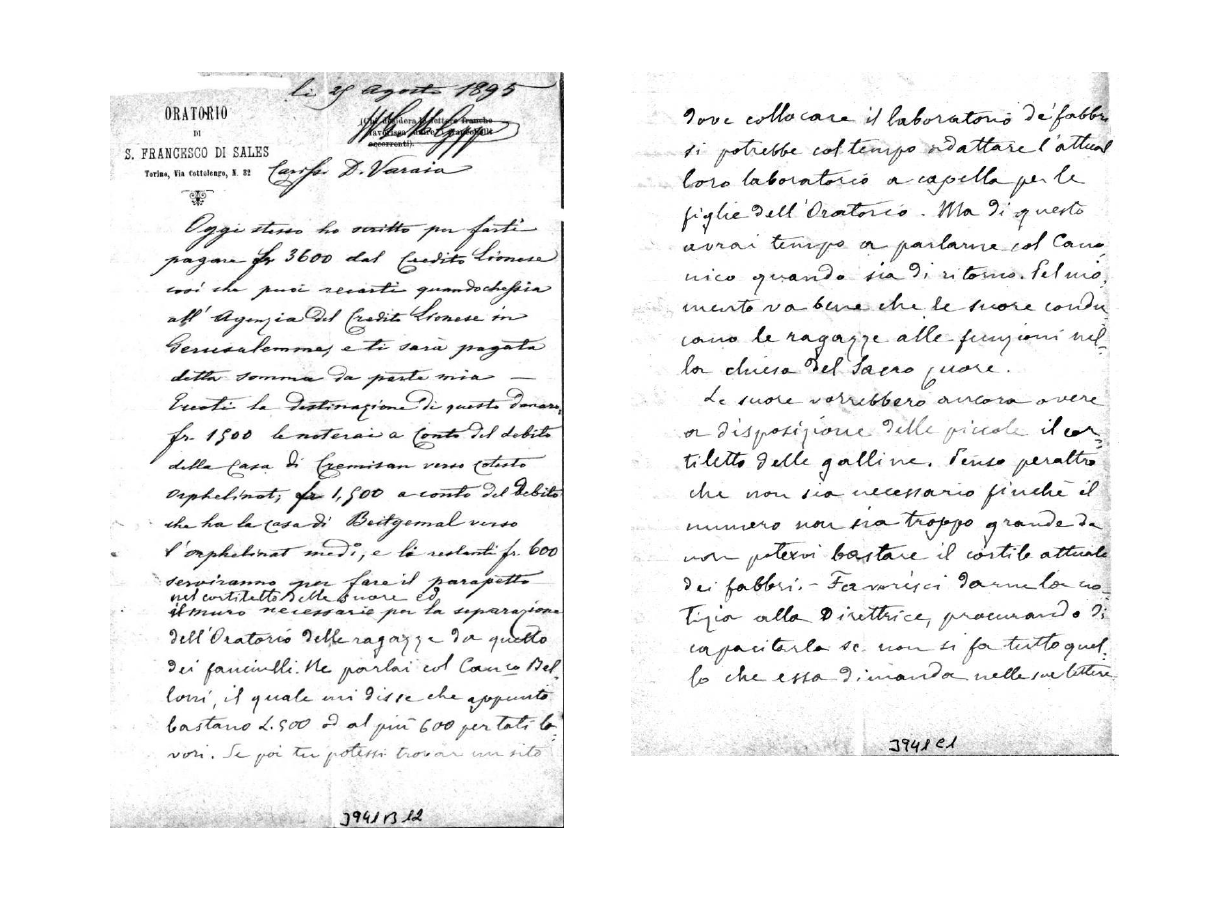 li 25 Agosto 1895
ORATORIO
DI
S. FRANCESCO DI SALES
Torino, Via Cottolengo, N. 32
(Chi desidera le lettere franche
favorisca unire i francobolli
occorrenti).
Cariss. D. Varaia
Oggi stesso ho scritto per farti
pagare fr 3600 dal Credito Lionese
così che puoi recarti quandochessia
all' Agenzia del Credito Lionese in
Gerusalemme, e ti sarà pagata
detta somma da parte mia —
Eccoti la destinazione di questo danaro,
fr. 1500 le noterai a Conto del debito
della Casa di Cremisan verso cotesto
orphelinat, fr 1,500 a conto del debito
che ha la casa di Beitgemal verso
l'orphelinat med°, e le restanti fr. 600
serviranno per fare il parapetto
nel cortiletto delle suore ed
il muro necessario per la separazione
dell'Oratorio delle ragazze da quello
dei fanciulli. Ne parlai col Canco Bel-
loni, il quale mi disse che appunto
bastano L. 500 od al più 600 per tali la-
vori. Se poi tu potessi trovar un sito
J941B12
dove collocare il laboratorio de' fabbri
si potrebbe col tempo adattare l'attual
loro laboratorio a capella per le
figlie dell'Oratorio. Ma di questo
avrai tempo a parlarne col Cano
nico quando sia di ritorno. Pel mo-
mento va bene che le suore condu
cano le ragazze alle funzioni nel-
la chiesa del Sacro Cuore.
Le suore vorrebbero ancora avere
a disposizione delle piccole il cor-
tiletto delle galline. Penso peraltro
che non sia necessario finchè il
numero non sia troppo grande da
non potervi bastare il cortile attuale
dei fabbri. - Favorisci darne la no-
tizia alla Direttrice, procurando di
capacitarla se non si fa tutto quel-
lo che essa dimanda nelle sue lettere
J941C1